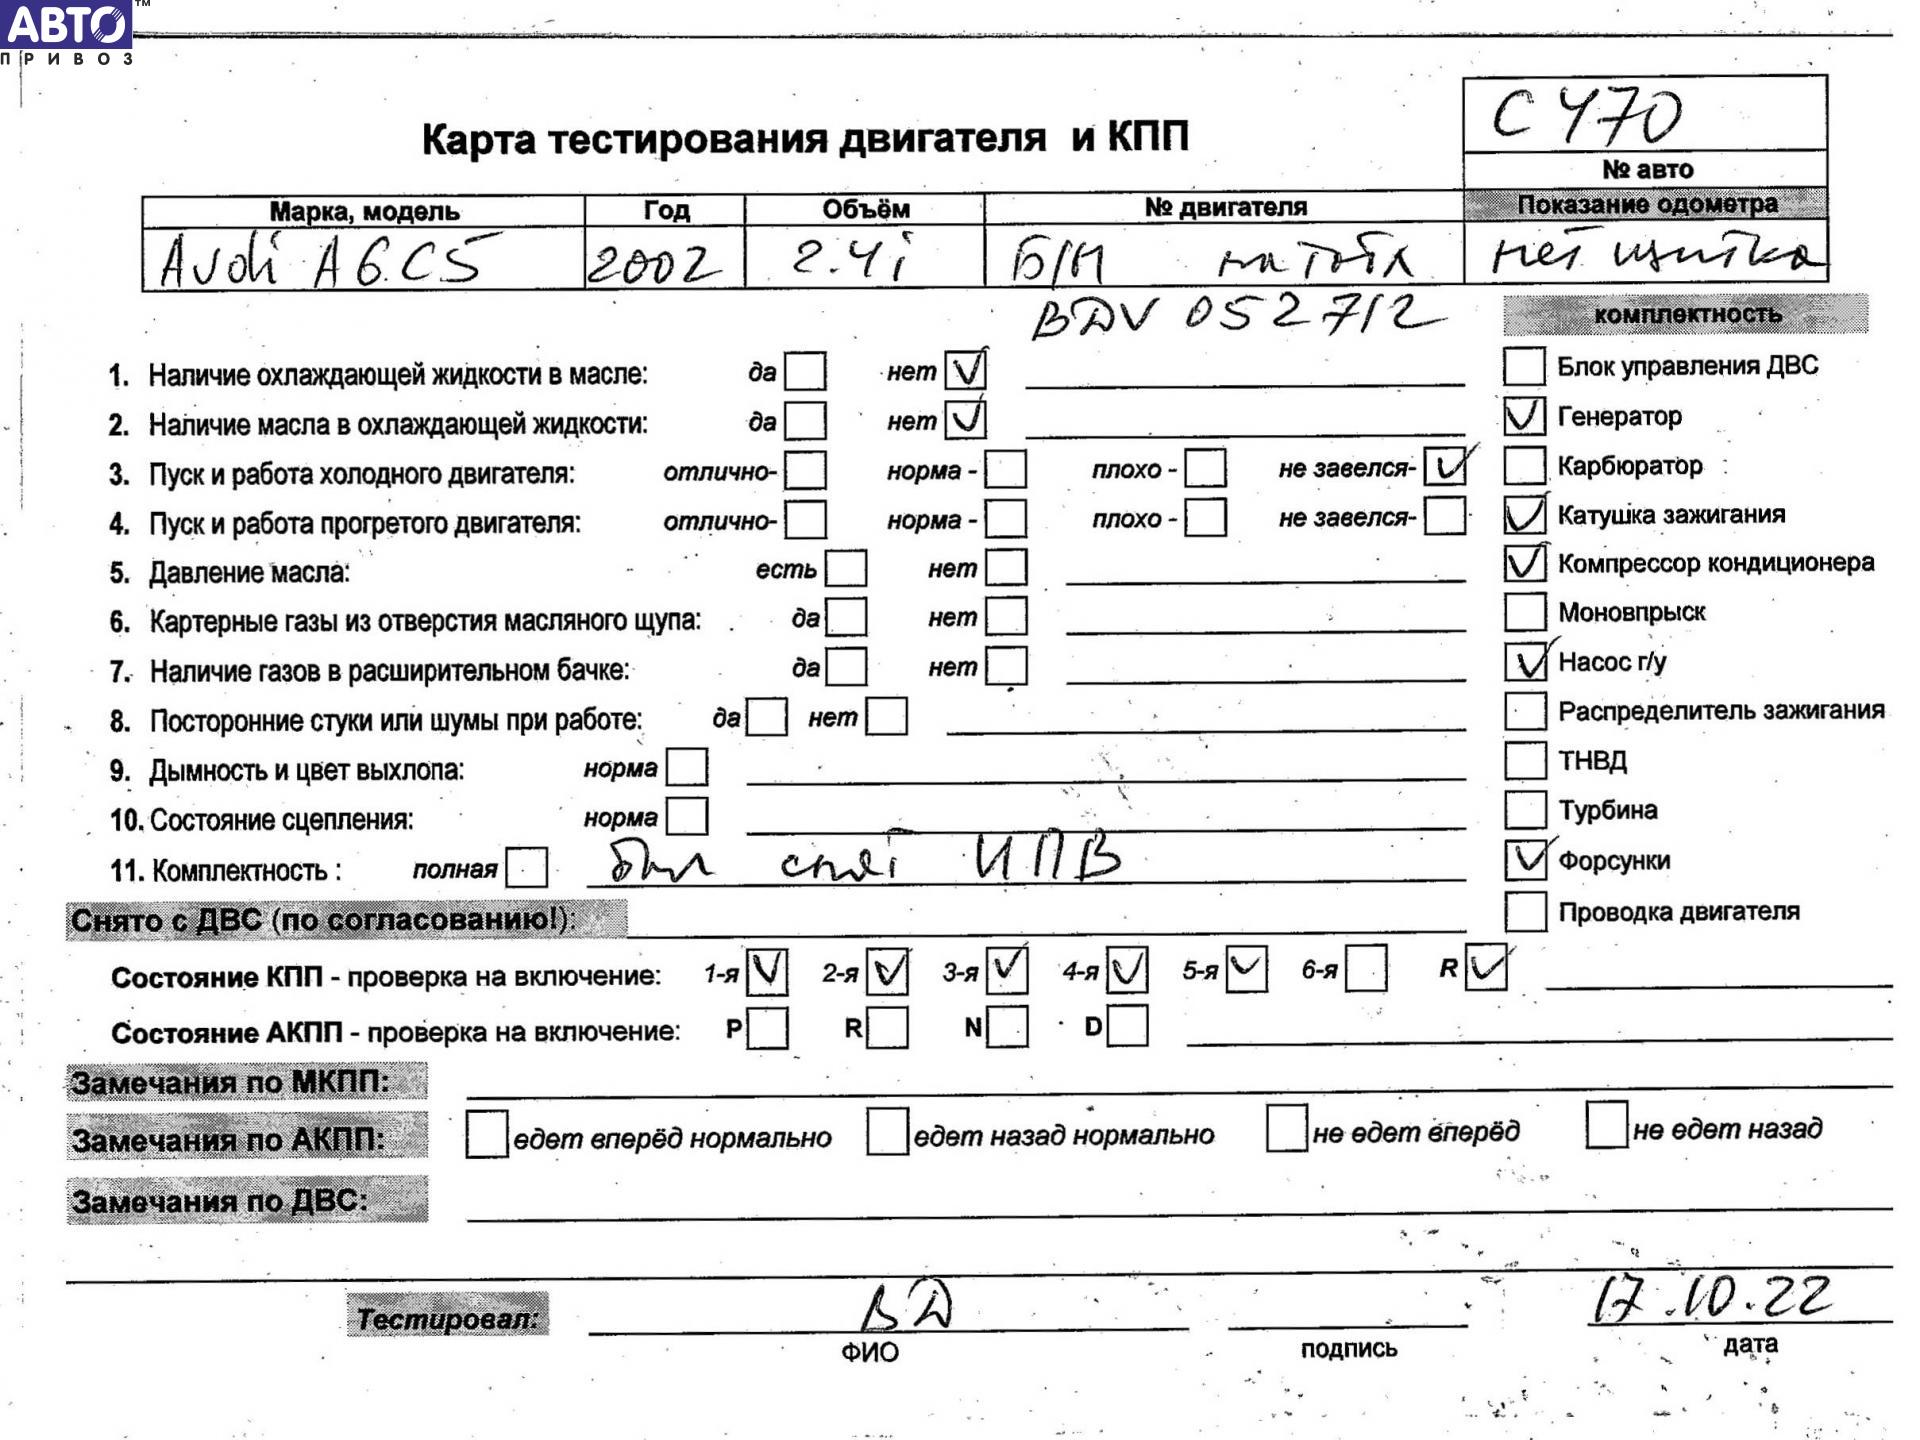 АВТО™
ПРИВОЗ
С 470
Карта тестирования двигателя и КПП
№ авто
Марка, модель Год Объём № двигателя Показание одометра
Audi A6 C5 2002 2.4i Б/Н на табл нет щитка
BDV 052712
комплектность
1. Наличие охлаждающей жидкости в масле: да нет ✓
Блок управления ДВС
2. Наличие масла в охлаждающей жидкости: да нет ✓
✓ Генератор
3. Пуск и работа холодного двигателя: отлично- норма - плохо - не завелся- ✓
Карбюратор
4. Пуск и работа прогретого двигателя: отлично- норма - плохо - не завелся-
✓ Катушка зажигания
5. Давление масла: есть нет
✓ Компрессор кондиционера
6. Картерные газы из отверстия масляного щупа: да нет
Моновпрыск
7. Наличие газов в расширительном бачке: да нет
✓ Насос г/у
8. Посторонние стуки или шумы при работе: да нет
Распределитель зажигания
9. Дымность и цвет выхлопа: норма
ТНВД
10. Состояние сцепления: норма
Турбина
11. Комплектность : полная был снят ИПВ
✓ Форсунки
Снято с ДВС (по согласованию!):
Проводка двигателя
Состояние КПП - проверка на включение: 1-я ✓ 2-я ✓ 3-я ✓ 4-я ✓ 5-я ✓ 6-я R ✓
Состояние АКПП - проверка на включение: P R N D
Замечания по МКПП:
Замечания по АКПП: едет вперёд нормально едет назад нормально не едет вперёд не едет назад
Замечания по ДВС:
Тестировал: ВД 17.10.22
ФИО подпись дата